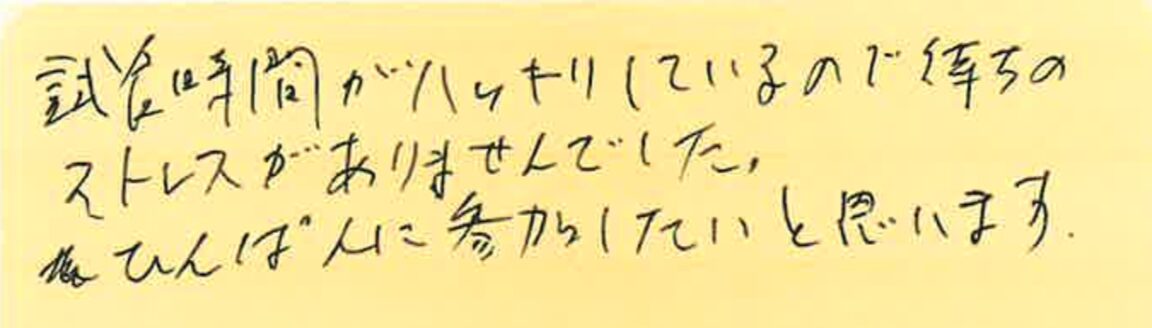 試食時間がハッキリしているので待ちの
ストレスがありませんでした。
ひんぱんに参加したいと思います.